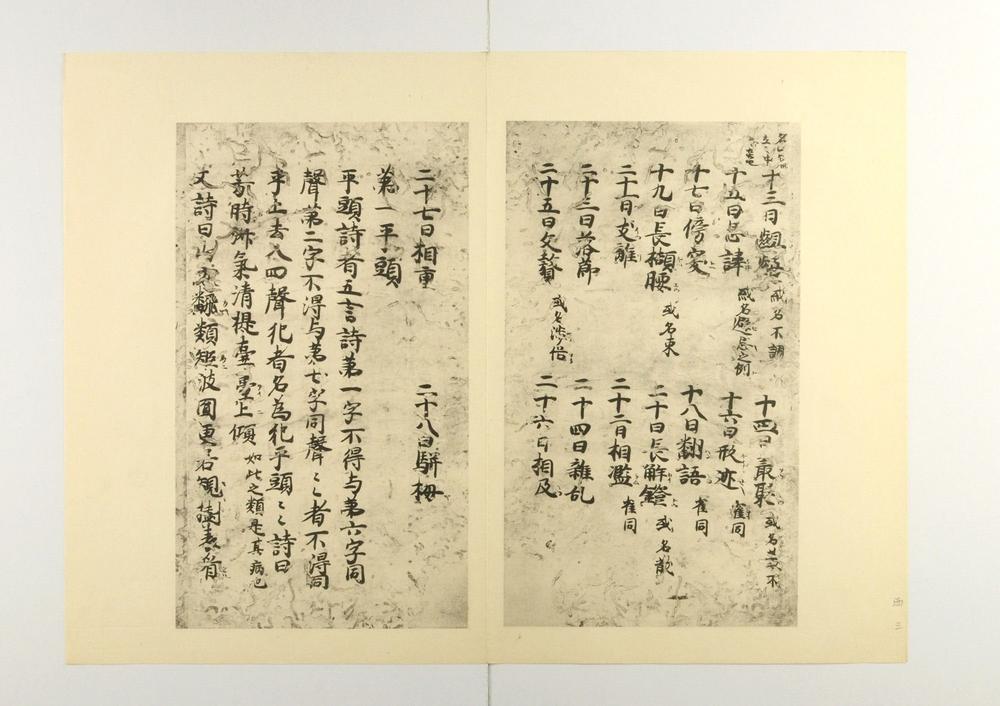 十三曰齟齬 或名不調 十四曰叢聚 或名叢不
十五曰忌諱 或名避忌之例 十六曰形迹 崔同
十七曰傍突 十八曰翻語 崔同
十九曰長擷腰 或名束 二十曰長解鐙 或名散
二十一曰支離 二十二曰相濫 崔同
二十三曰落節 二十四曰雜乱
二十五曰文贅 或名涉俗 二十六曰相及
二十七曰相重 二十八曰駢拇
第一平頭
平頭詩者五言詩第一字不得与第六字同
聲第二字不得与第七字同聲々者不得同
平上去入四聲犯者名為犯平頭々詩曰
芳時淑氣清提壺臺上傾 如此之類是其病也
又詩曰山方翻類矩波圓更若規樹表看
西 三